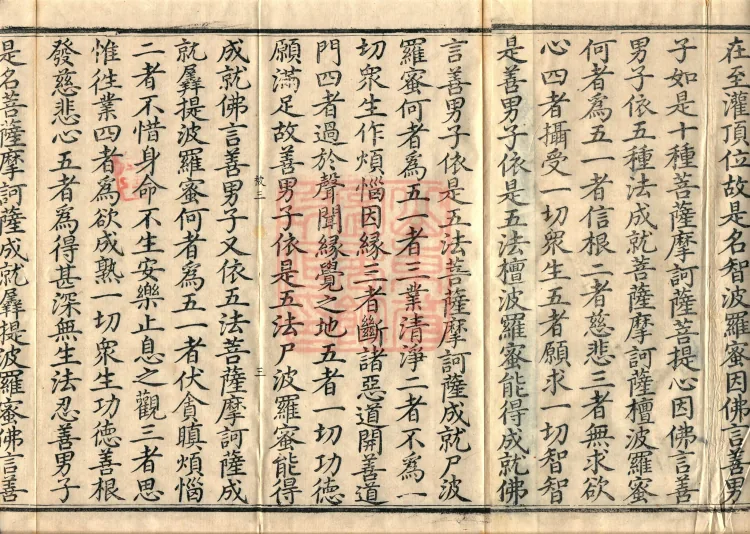 在至灌頂位故是名智波羅蜜因佛言善男
子如是十種菩薩摩訶薩菩提心因佛言善
男子依五種法成就菩薩摩訶薩檀波羅蜜
何者為五一者信根二者慈悲三者無求欲
心四者攝受一切衆生五者願求一切智智
是善男子依是五法檀波羅蜜能得成就佛
言善男子依是五法菩薩摩訶薩成就尸波
羅蜜何者為五一者三業清淨二者不為一
切衆生作煩惱因緣三者斷諸惡道開善道
門四者過於聲聞緣覺之地五者一切功德
願滿足故善男子依是五法尸波羅蜜能得
三
成就佛言善男子又依五法菩薩摩訶薩成
就羼提波羅蜜何者為五一者伏貪瞋煩惱
二者不惜身命不生安樂止息之觀三者思
惟往業四者為欲成熟一切衆生功德善根
發慈悲心五者為得甚深無生法忍善男子
是名菩薩摩訶薩成就羼提波羅蜜佛言善